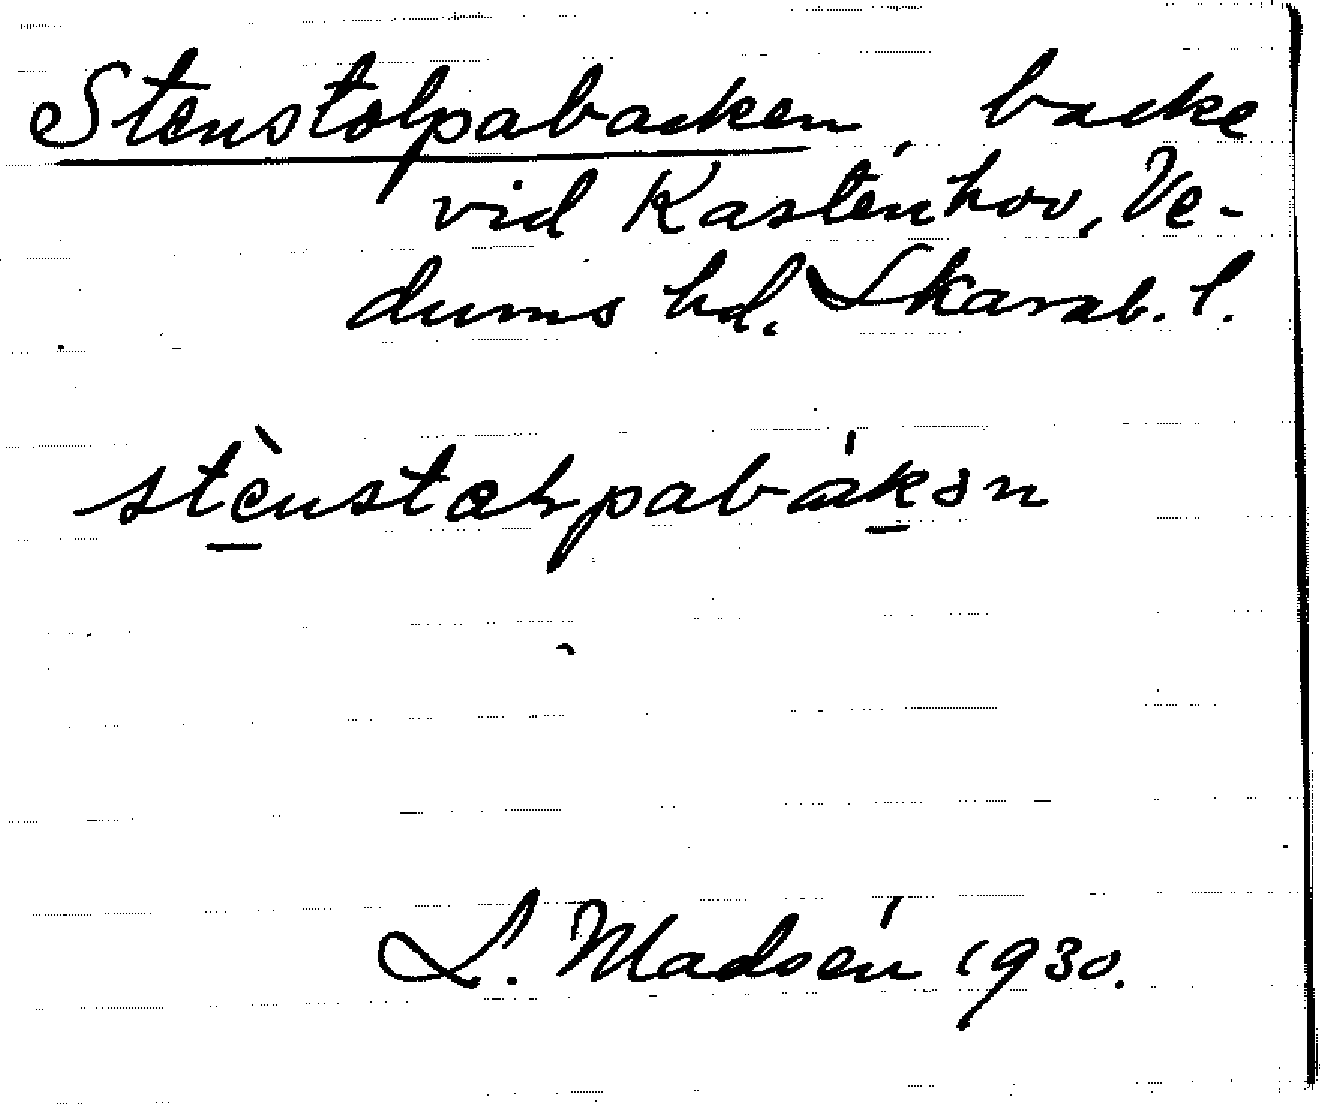 Stenstolpabacken backe
vid Kasténhov, Ve-
dums hd. Skarab. l.
stènstolpabákən
L. Madsén 1930.